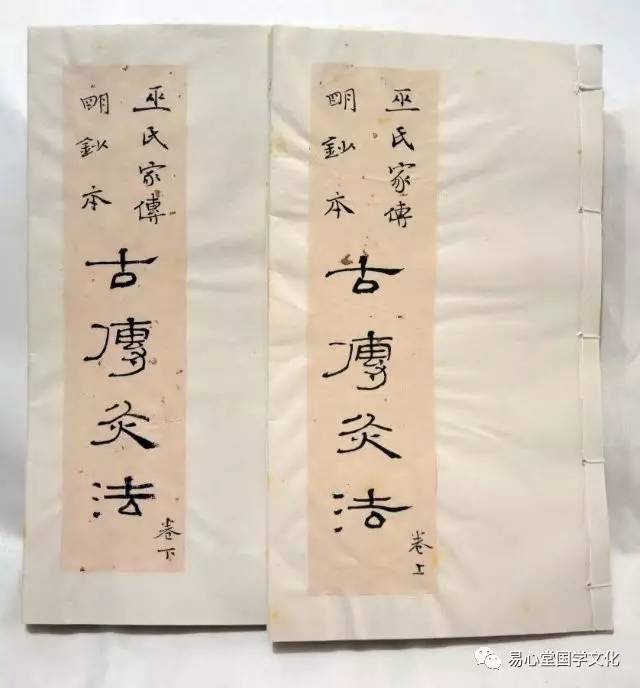 巫氏家傳
明鈔本
古傳灸法
卷上
巫氏家傳
明鈔本
古傳灸法
卷下
易心堂国学文化